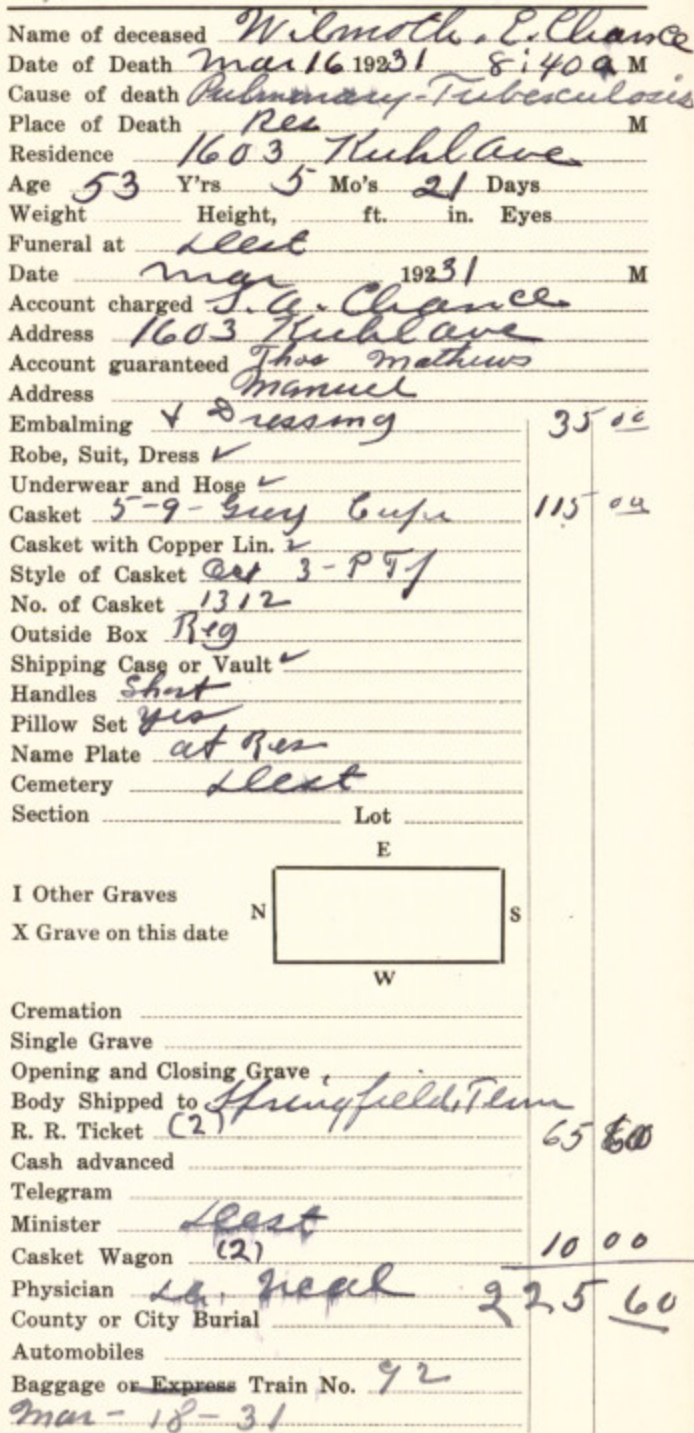 Name of deceased Wilmoth. E. Chance
Date of Death Mar 16 19231 8:40 a M
Cause of death Pulmonary-Tuberculosis
Place of Death Res M
Residence 1603 Kuhl Ave
Age 53 Y'rs 5 Mo's 21 Days
Weight Height, ft. in. Eyes
Funeral at Dest
Date Mar 19231 M
Account charged S. A. Chance
Address 1603 Kuhl Ave
Account guaranteed Thos Mathews
Address Manuel
Embalming & Dressing 35 00
Robe, Suit, Dress ✓
Underwear and Hose ✓
Casket 5-9- Grey 115 00
Casket with Copper Lin. ✓
Style of Casket Oct 3-P
No. of Casket 1312
Outside Box Reg
Shipping Case or Vault ✓
Handles Short
Pillow Set yes
Name Plate at Res
Cemetery Dest
Section Lot
E
I Other Graves
N S
X Grave on this date
W
Cremation
Single Grave
Opening and Closing Grave
Body Shipped to Springfield, Tenn
R. R. Ticket (2) 65 60
Cash advanced
Telegram
Minister Dest
Casket Wagon (2) 10 00
Physician Neal 225 60
County or City Burial
Automobiles
Baggage or Express Train No. 92
Mar-18-31